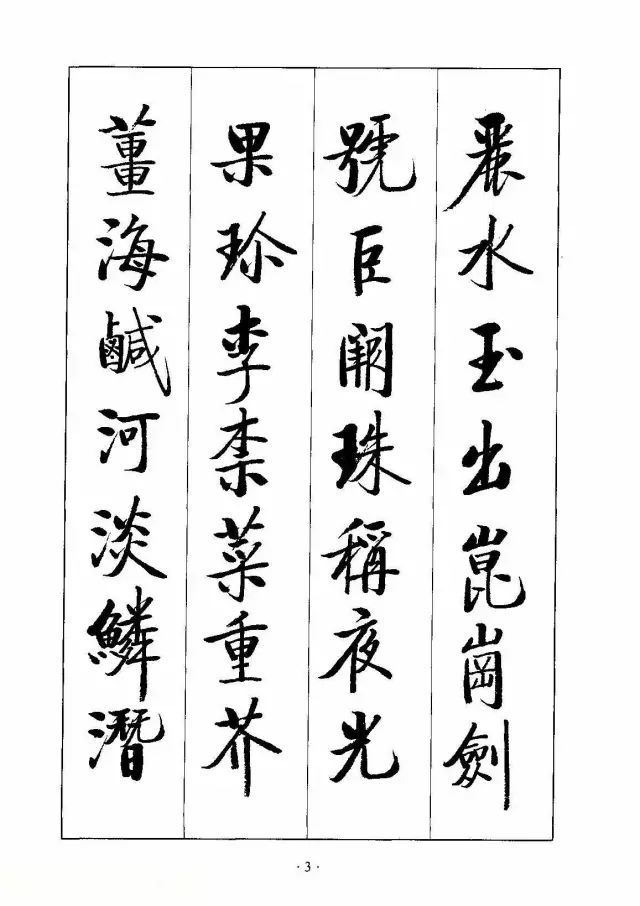 麗水玉出崑崗劍
號巨闕珠稱夜光
果珍李柰菜重芥
薑海鹹河淡鱗潛
·3·